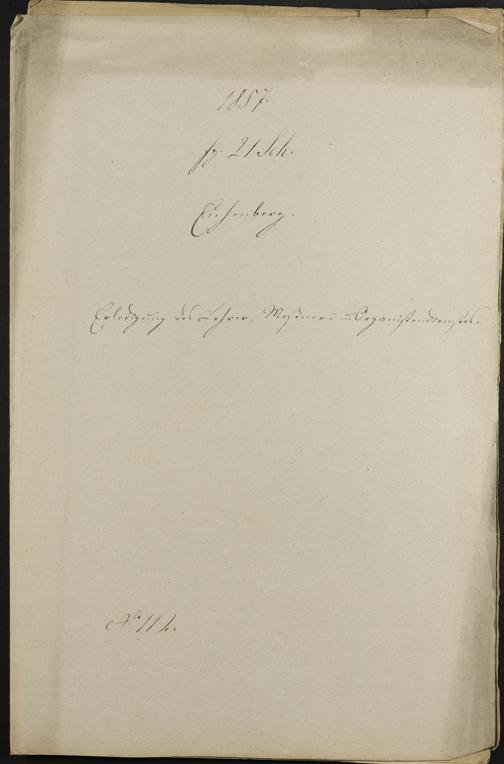 1857.
fz. 21 Sch.
Eichenberg.
Erledigung des Lehrer- Meßner- u Organistendienstes.
No 114.